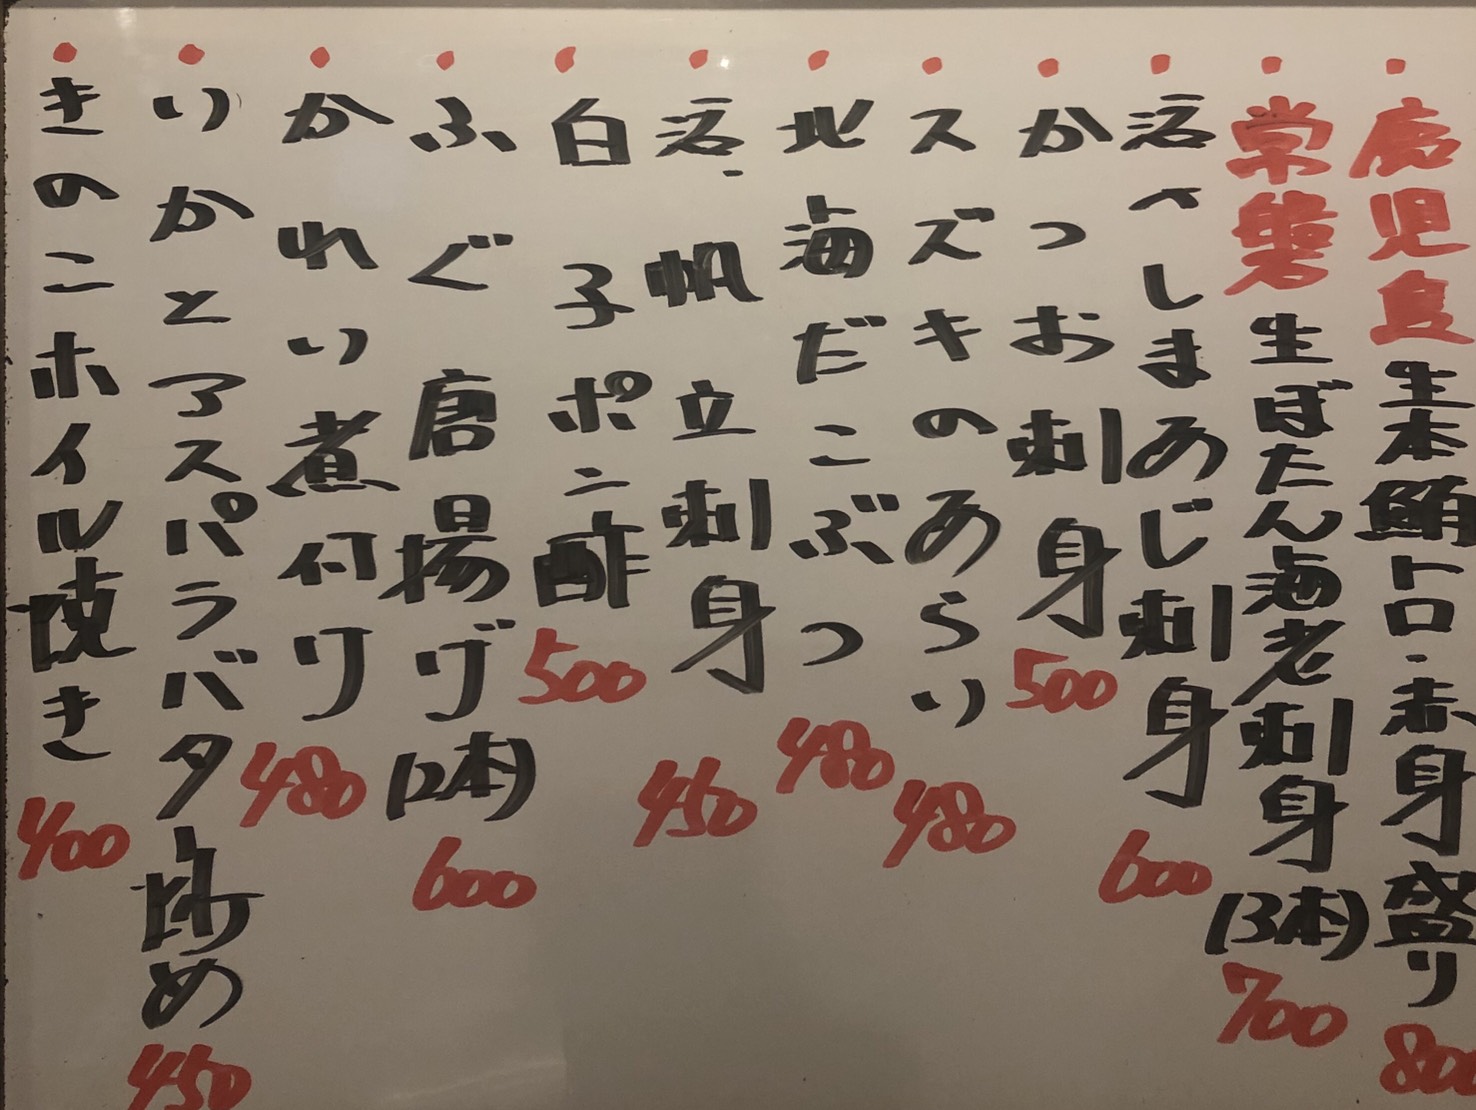 ・鹿児島生本鮪トロ・赤身盛り 800
・常磐生ぼたん海老刺身(3本) 700
・活〆しまあじ刺身 600
・かつお刺身 500
・スズキのあらい 480
・北海だこぶつ 480
・活・帆立刺身 450
・白子ポン酢 500
・ふぐ唐揚げ(2本) 600
・かれい煮付け 480
・いかとアスパラバター炒め 450
・きのこホイル焼き 400